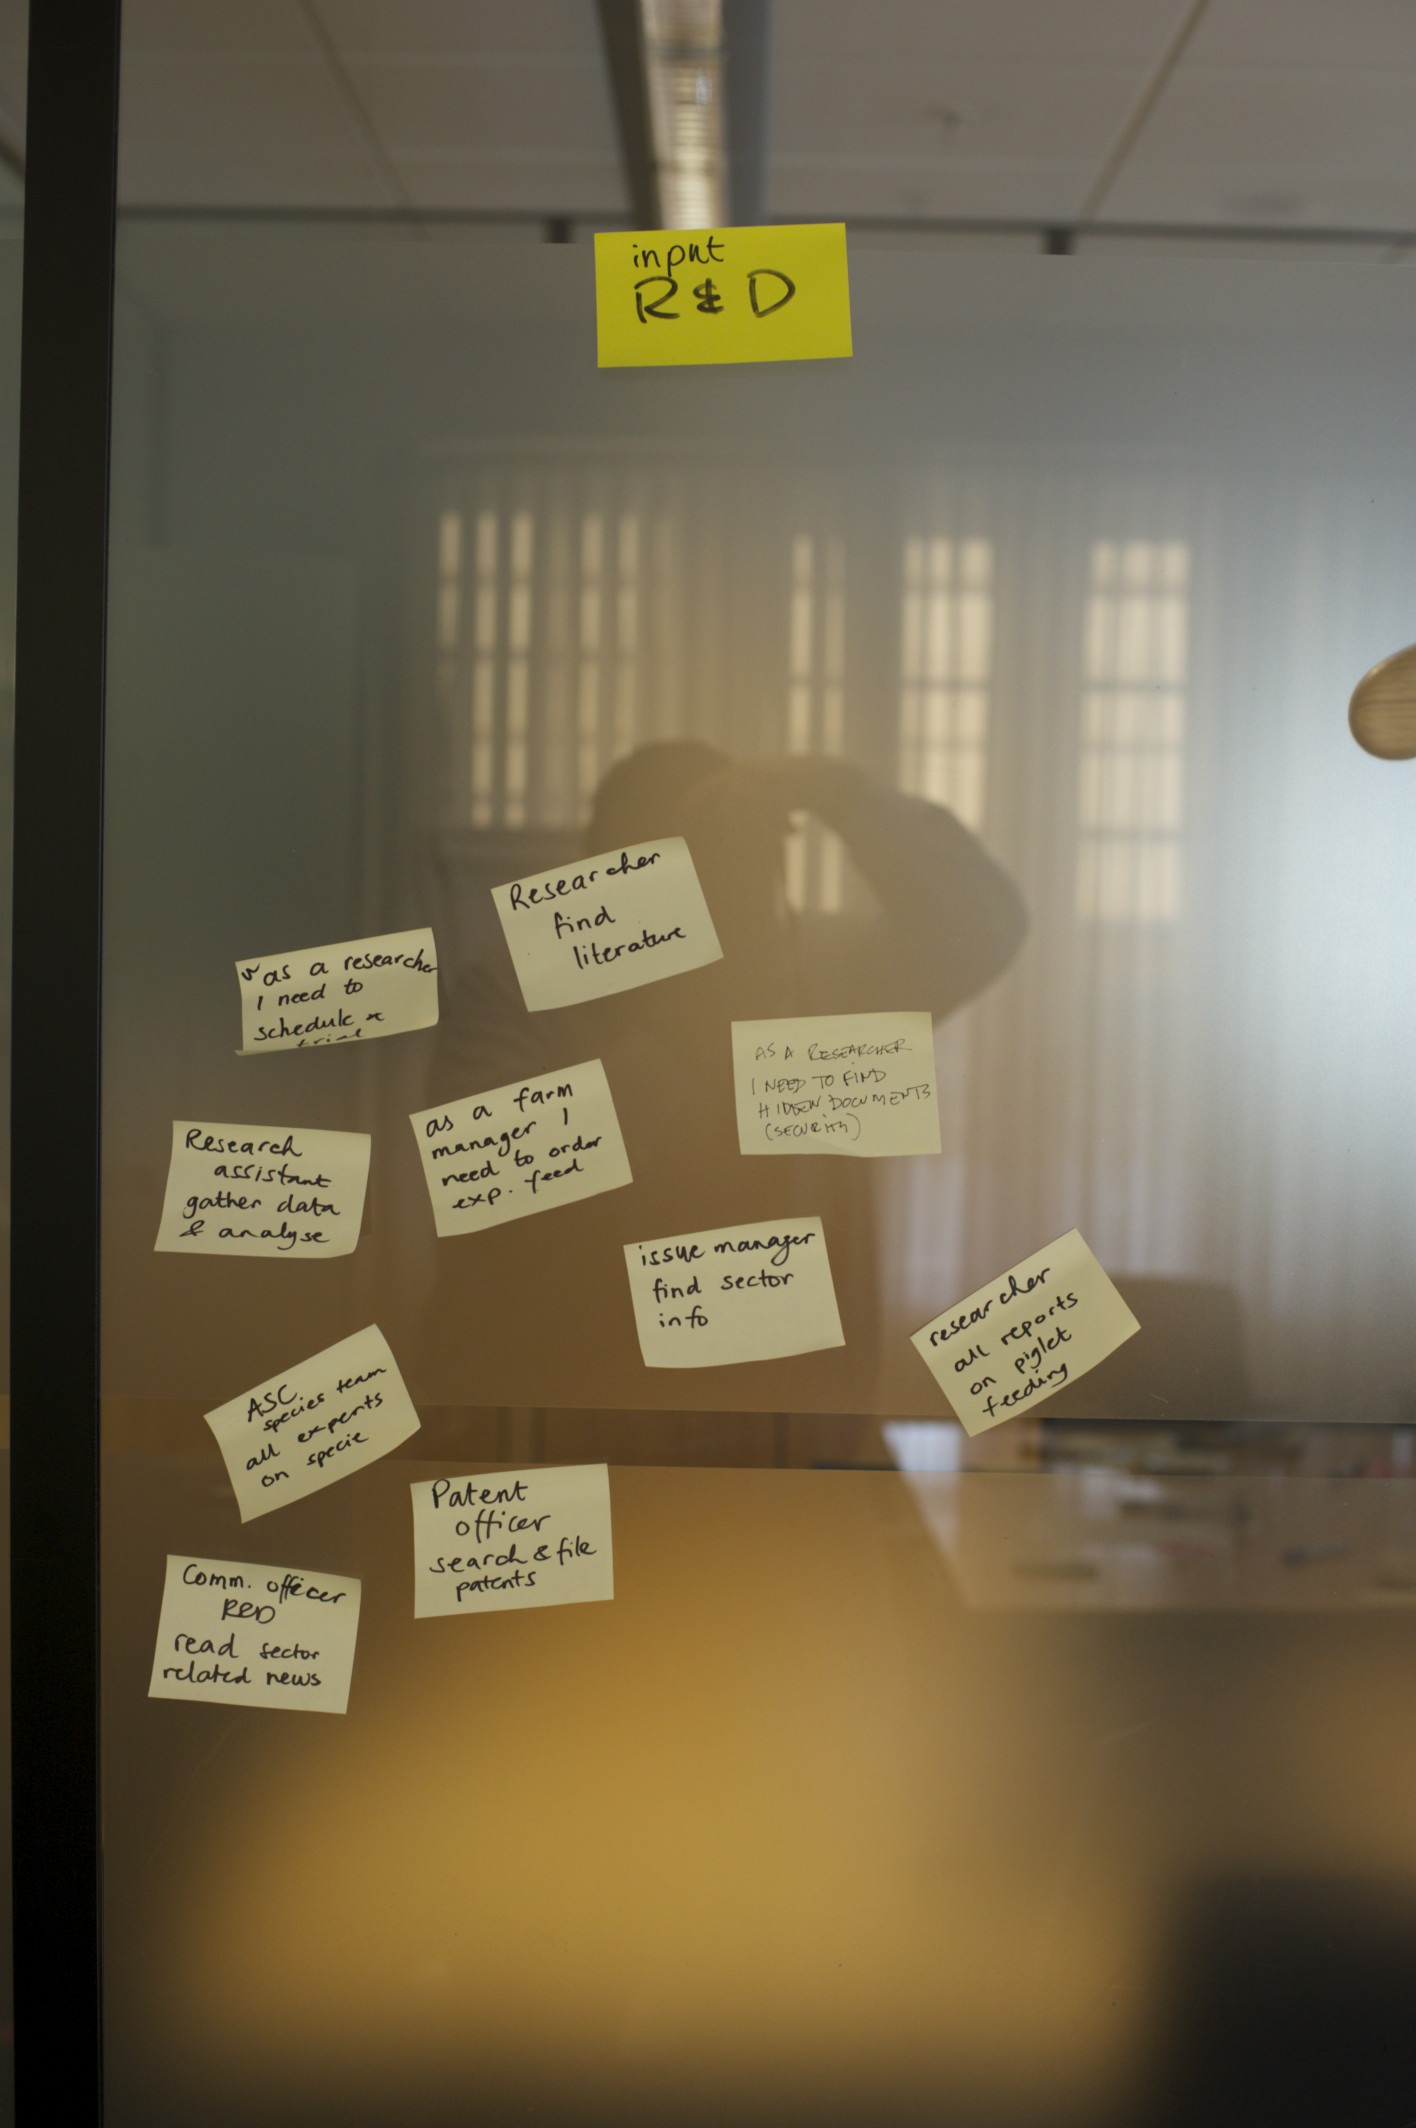 input
R & D
Researcher
find
literature
as a researcher
I need to
schedule a
trial
AS A RESEARCHER
I NEED TO FIND
HIDDEN DOCUMENTS
(SECURITY)
as a farm
manager I
need to order
exp. feed
Research
assistant
gather data
& analyse
issue manager
find sector
info
researcher
all reports
on piglet
feeding
ASC
species team
all experts
on specie
Patent
officer
search & file
patents
Comm. officer
R&D
read sector
related news